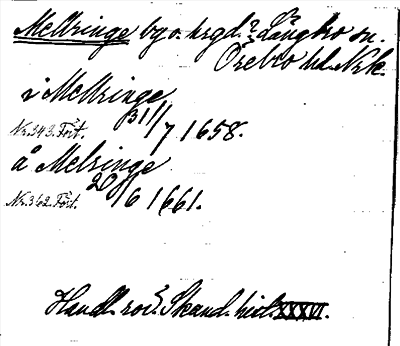 Mellringe by o. hrgd? Längbro sn.
Örebro hd. Nrk.
i Mellringe
Nr. 343. Fört. 31/7 1658.
å Melringe
Nr. 362. Fört. 20/6 1661.
Handl. rör. Skand. hist. XXXVI.